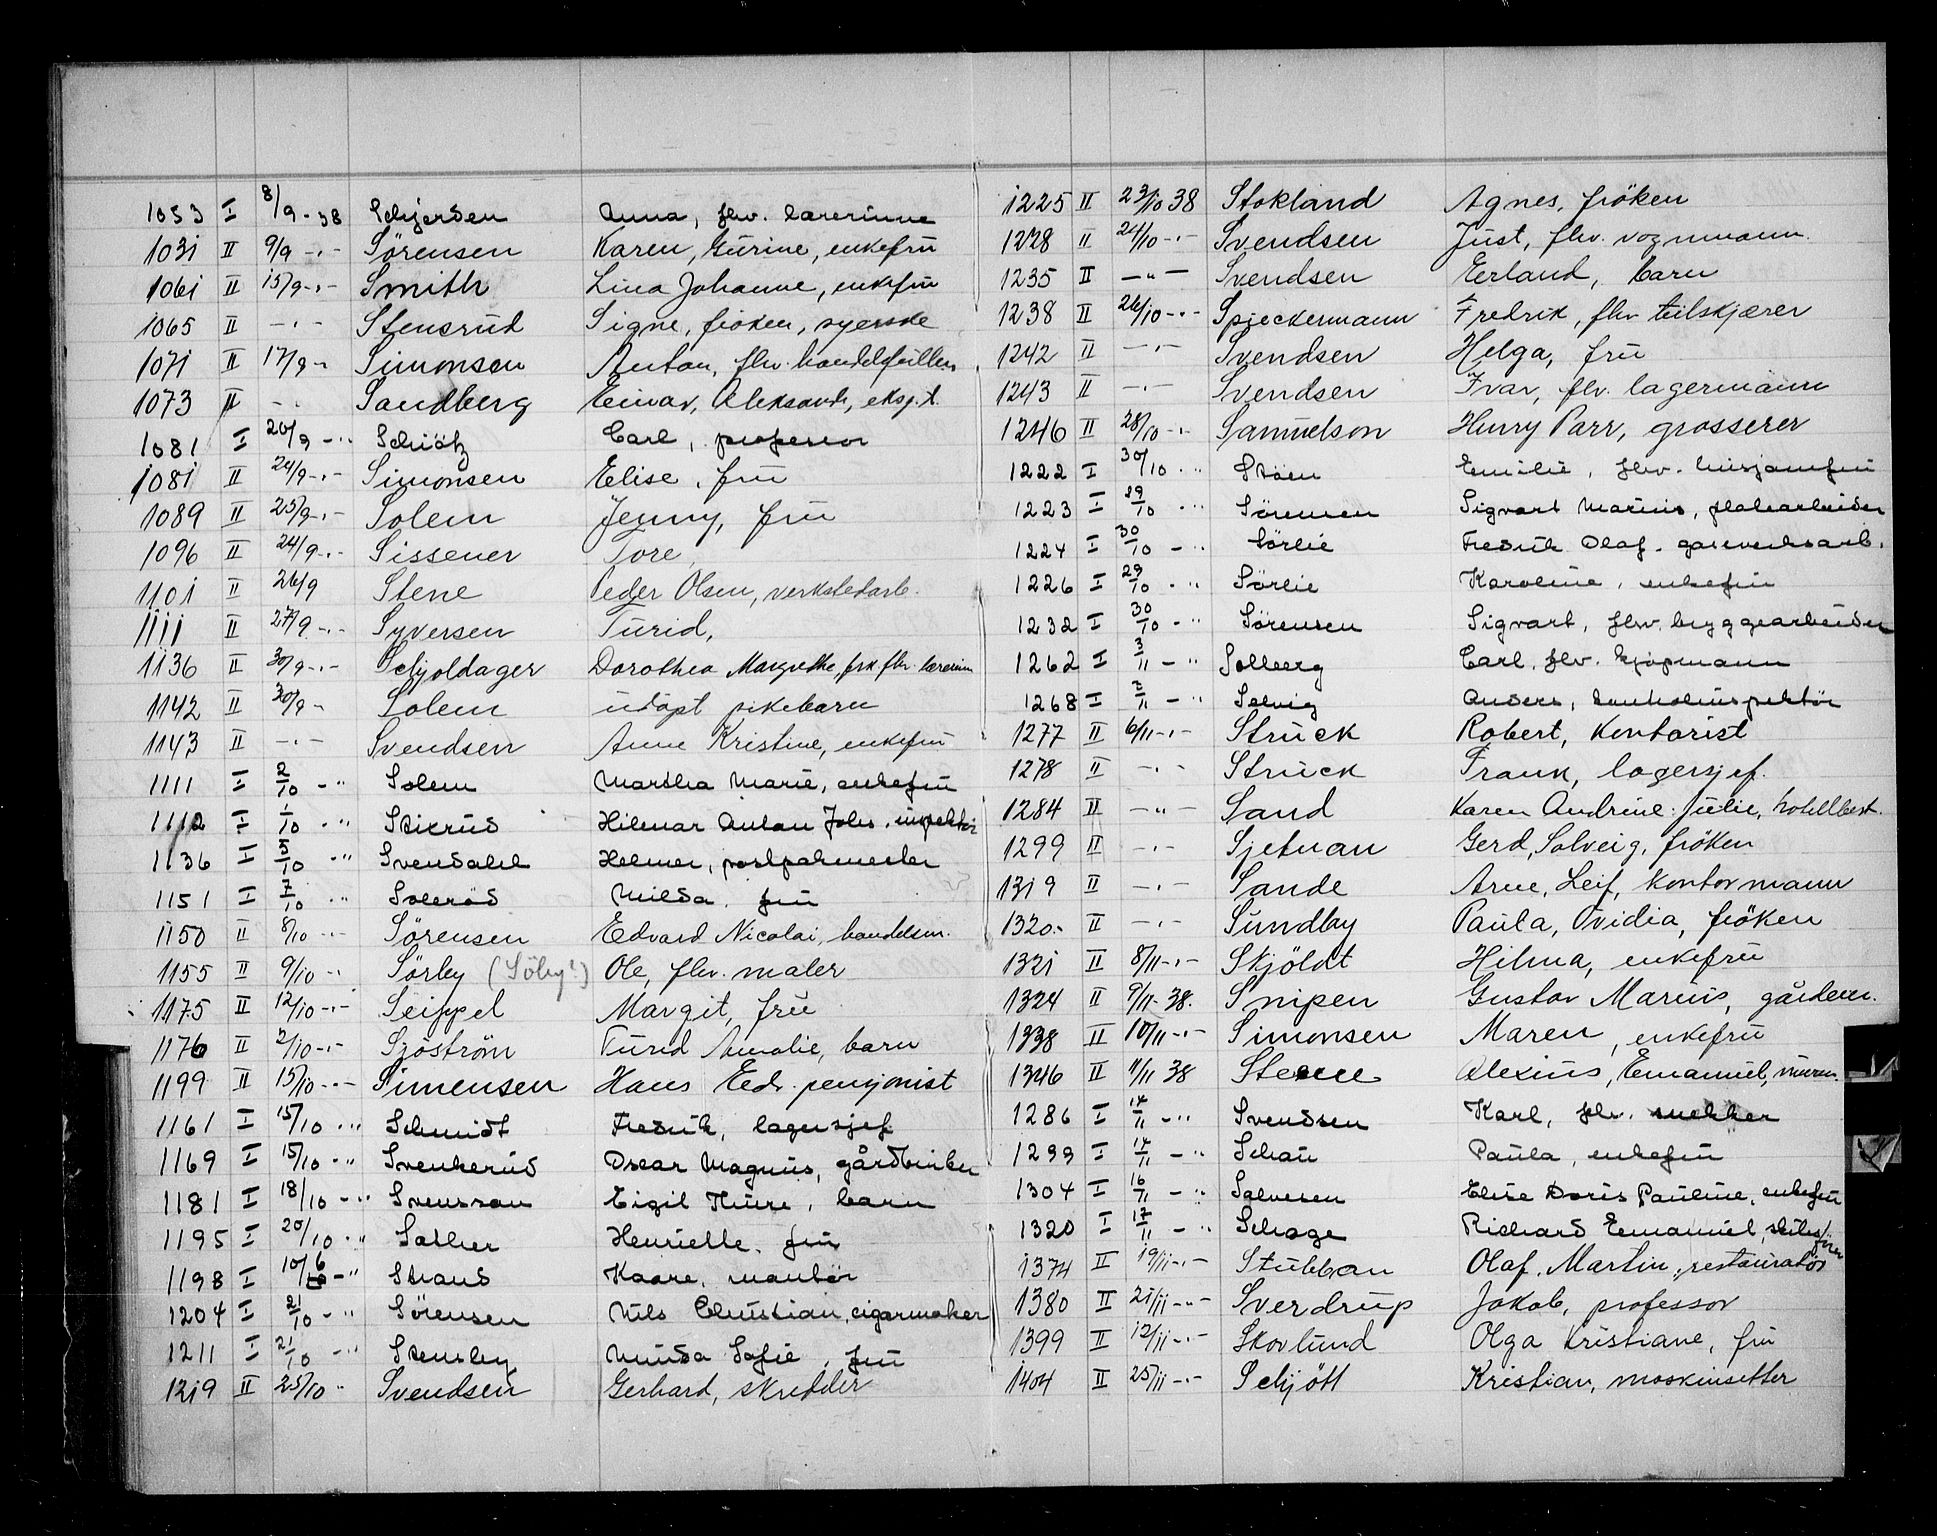 1053 I 8/9-38 Schjersen Anna, fhv. lærerinne
1031 II 9/9 -"- Sörensen Karen, Gurine, enkefru
1061 II 15/9 -"- Smith Lina Johanne, enkefru
1065 II -"- Stensrud Signe, fröken, syerske
1071 II 17/9 - Simonsen Anton, fhv.
1073 II - Sandberg Einar, Aleksandr, eksp.
1081 I 20/9 -"- Schiötz Carl, professor
1081 II 24/9 -"- Simonsen Elise, fru
1089 II 25/9 -"- Solem Jenny, fru
1096 II 24/9 -"- Sissener Tore,
1101 II 26/9 Stene Peder Olsen, verkstedarb.
1111 II 27/9 -"- Syversen Turid,
1136 II 30/9 -"- Schjoldager Dorothea Margrethe, frk. fhv. lærerinn
1142 II 30/9 - Solem udöpt pikebarn
1143 II -"- Svendsen Anne Kristine, enkefru
1111 I 2/10 -"- Solem Martha Marie, enkefru
1112 I 1/10 -"- Stikrud Hilmar Anton Johs. inspektör
1136 I 5/10 -"- Svendahl Helmer, postpakmester
1151 I 7/10 -"- Soleröd Milda, fru
1150 II 8/10 -"- Sörensen Edvard Nicolai, handelsm.
1155 II 9/10 -"- Sörby (Söby?) Ole, fhv. maler
1175 II 12/10 -"- Seippel Margit, fru
1176 II 2/10 -"- Sjöström Turid Amalie, barn
1199 II 15/10 -"- Simensen Hans Edv. pensjonist
1161 I 15/10 -"- Schmidt Fredrik, lagersjef
1169 I 15/10 -"- Svenkerud Oscar Magnus, gårdbruker
1181 I 18/10 -"- Svensson Eigil Thure, barn
1195 I 20/10 -"- Sather Henriette, fru
1198 I 10/6 -"- Strand Kaare, montör
1204 I 21/10 -"- Sörensen Nils Christian, cigarmaker
1211 I 21/10 -"- Stensby Minda Sofie, fru
1219 II 25/10 " Svendsen Gerhard, skredder
1225 II 23/10 38 Stokland Agnes, fröken
1228 II 24/10 -"- Svendsen Just, fhv. vognmann.
1235 II -"- Svendsen Erland, barn
1238 II 26/10 -"- Spjeckermann Fredrik, fhv. tilskjærer
1242 II -"- Svendsen Helga, fru
1243 II -"- Svendsen Ivar, fhv. lagermann
1246 II 28/10 -"- Samuelson Henry Parr, grosserer
1222 I 30/10 -"- Stöen Emilie, fhv. husjomfru
1223 I 29/10 -"- Sörensen Sigvart Marius, platearbeider
1224 I 30/10 -"- Sörlie Fredrik Olaf, gasverksarb.
1226 I 29/10 -"- Sörlie Karoline, enkefru
1232 I 30/10 -"- Sörensen Sigvart, fhv. bryggearbeider
1262 I 3/11 -"- Solberg Carl, fhv. kjöpmann
1268 I 2/11 -"- Selvig Anders,
1277 II 6/11 -"- Struck Robert, Kontorist
1278 II -"- Struck Frank, lagersjef.
1284 II -"- Sand Karen Andrine Julie, hotellbest.
1299 II -"- Sjetnan Gerd, Solveig, fröken
1319 II -"- Sande Arne, Leif, kontormann
1320 II -"- Sundby Paula, Ovidia, fröken
1321 II 8/11 -"- Skjöldt Hilma, enkefru
1324 II 9/11-38. Snipen Gustav Marius, gårdeier.
1338 II 10/11 -"- Simonsen Maren, enkefru
1346 II 11/11 38 Steene Alexius, Emanuel, murer.
1286 I 14/11 -"- Svendsen Karl, fhv. snekker
1299 I 14/11 -"- Schau Paula, enkefru
1304 I 16/11 -"- Salvesen Elise Doris Pauline, enkefru
1320 I 17/11 -"- Schage Richard Emanuel,
1374 II 19/11 -"- Stubban Olaf, Martin, restauratör
1380 II 21/11 -"- Sverdrup Jakob, professor
1399 II 12/11 -"- Skovlund Olga Kristiane, fru
1404 II 25/11 -"- Schjött Kristian, maskinsetter